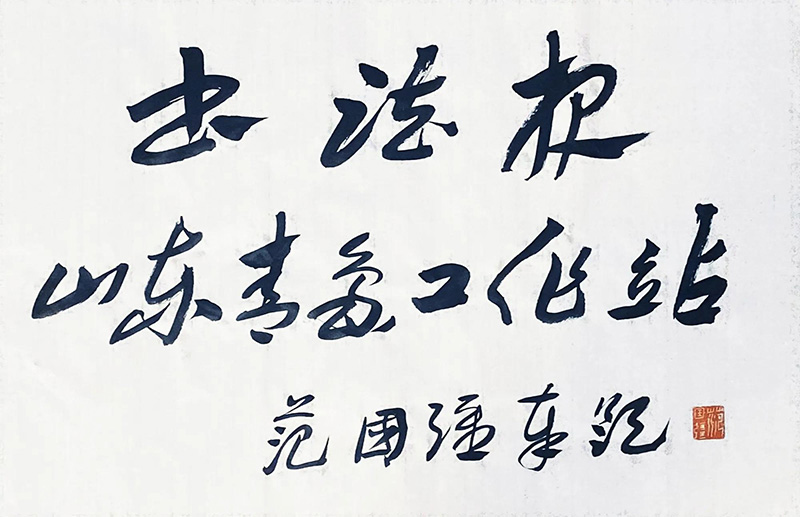 书法报
山东青岛工作站
范国强奉题